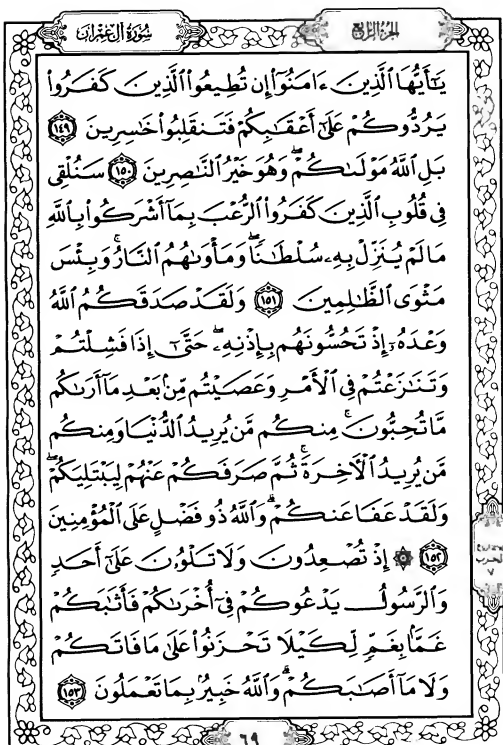 سُورَةُ آلِ عِمْرَانَ
الجزء الرابع
يَٰٓأَيُّهَا ٱلَّذِينَ ءَامَنُوٓا۟ إِن تُطِيعُوا۟ ٱلَّذِينَ كَفَرُوا۟
يَرُدُّوكُمْ عَلَىٰٓ أَعْقَٰبِكُمْ فَتَنقَلِبُوا۟ خَٰسِرِينَ ١٤٩
بَلِ ٱللَّهُ مَوْلَىٰكُمْ ۖ وَهُوَ خَيْرُ ٱلنَّٰصِرِينَ ١٥٠ سَنُلْقِى
فِى قُلُوبِ ٱلَّذِينَ كَفَرُوا۟ ٱلرُّعْبَ بِمَآ أَشْرَكُوا۟ بِٱللَّهِ
مَا لَمْ يُنَزِّلْ بِهِۦ سُلْطَٰنًا ۖ وَمَأْوَىٰهُمُ ٱلنَّارُ ۚ وَبِئْسَ
مَثْوَى ٱلظَّٰلِمِينَ ١٥١ وَلَقَدْ صَدَقَكُمُ ٱللَّهُ
وَعْدَهُۥٓ إِذْ تَحُسُّونَهُم بِإِذْنِهِۦ ۖ حَتَّىٰٓ إِذَا فَشِلْتُمْ
وَتَنَٰزَعْتُمْ فِى ٱلْأَمْرِ وَعَصَيْتُم مِّنۢ بَعْدِ مَآ أَرَىٰكُم
مَّا تُحِبُّونَ ۚ مِنكُم مَّن يُرِيدُ ٱلدُّنْيَا وَمِنكُم
مَّن يُرِيدُ ٱلْءَاخِرَةَ ۚ ثُمَّ صَرَفَكُمْ عَنْهُمْ لِيَبْتَلِيَكُمْ ۖ
وَلَقَدْ عَفَا عَنكُمْ ۗ وَٱللَّهُ ذُو فَضْلٍ عَلَى ٱلْمُؤْمِنِينَ
١٥٢ ۞ إِذْ تُصْعِدُونَ وَلَا تَلْوُۥنَ عَلَىٰٓ أَحَدٍ
وَٱلرَّسُولُ يَدْعُوكُمْ فِىٓ أُخْرَىٰكُمْ فَأَثَٰبَكُمْ
غَمًّۢا بِغَمٍّ لِّكَيْلَا تَحْزَنُوا۟ عَلَىٰ مَا فَاتَكُمْ
وَلَا مَآ أَصَٰبَكُمْ ۗ وَٱللَّهُ خَبِيرٌۢ بِمَا تَعْمَلُونَ ١٥٣
الحزب
٧
٦٩